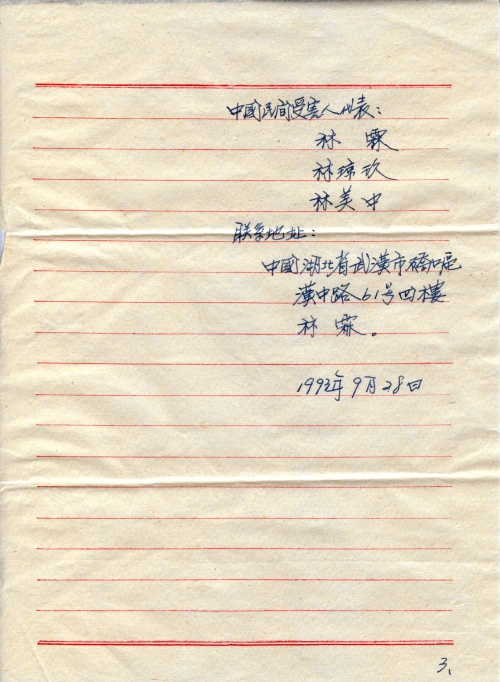 中國民间受害人代表：
林　霖
林琼玖
林美中
联系地址：
中國湖北省武漢市硚口区
漢中路61号四樓
林　霖。
1993年9月28日
3、